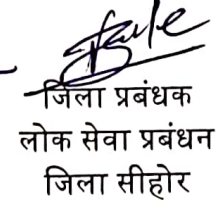 जिला प्रबंधक
लोक सेवा प्रबंधन
जिला सीहोर